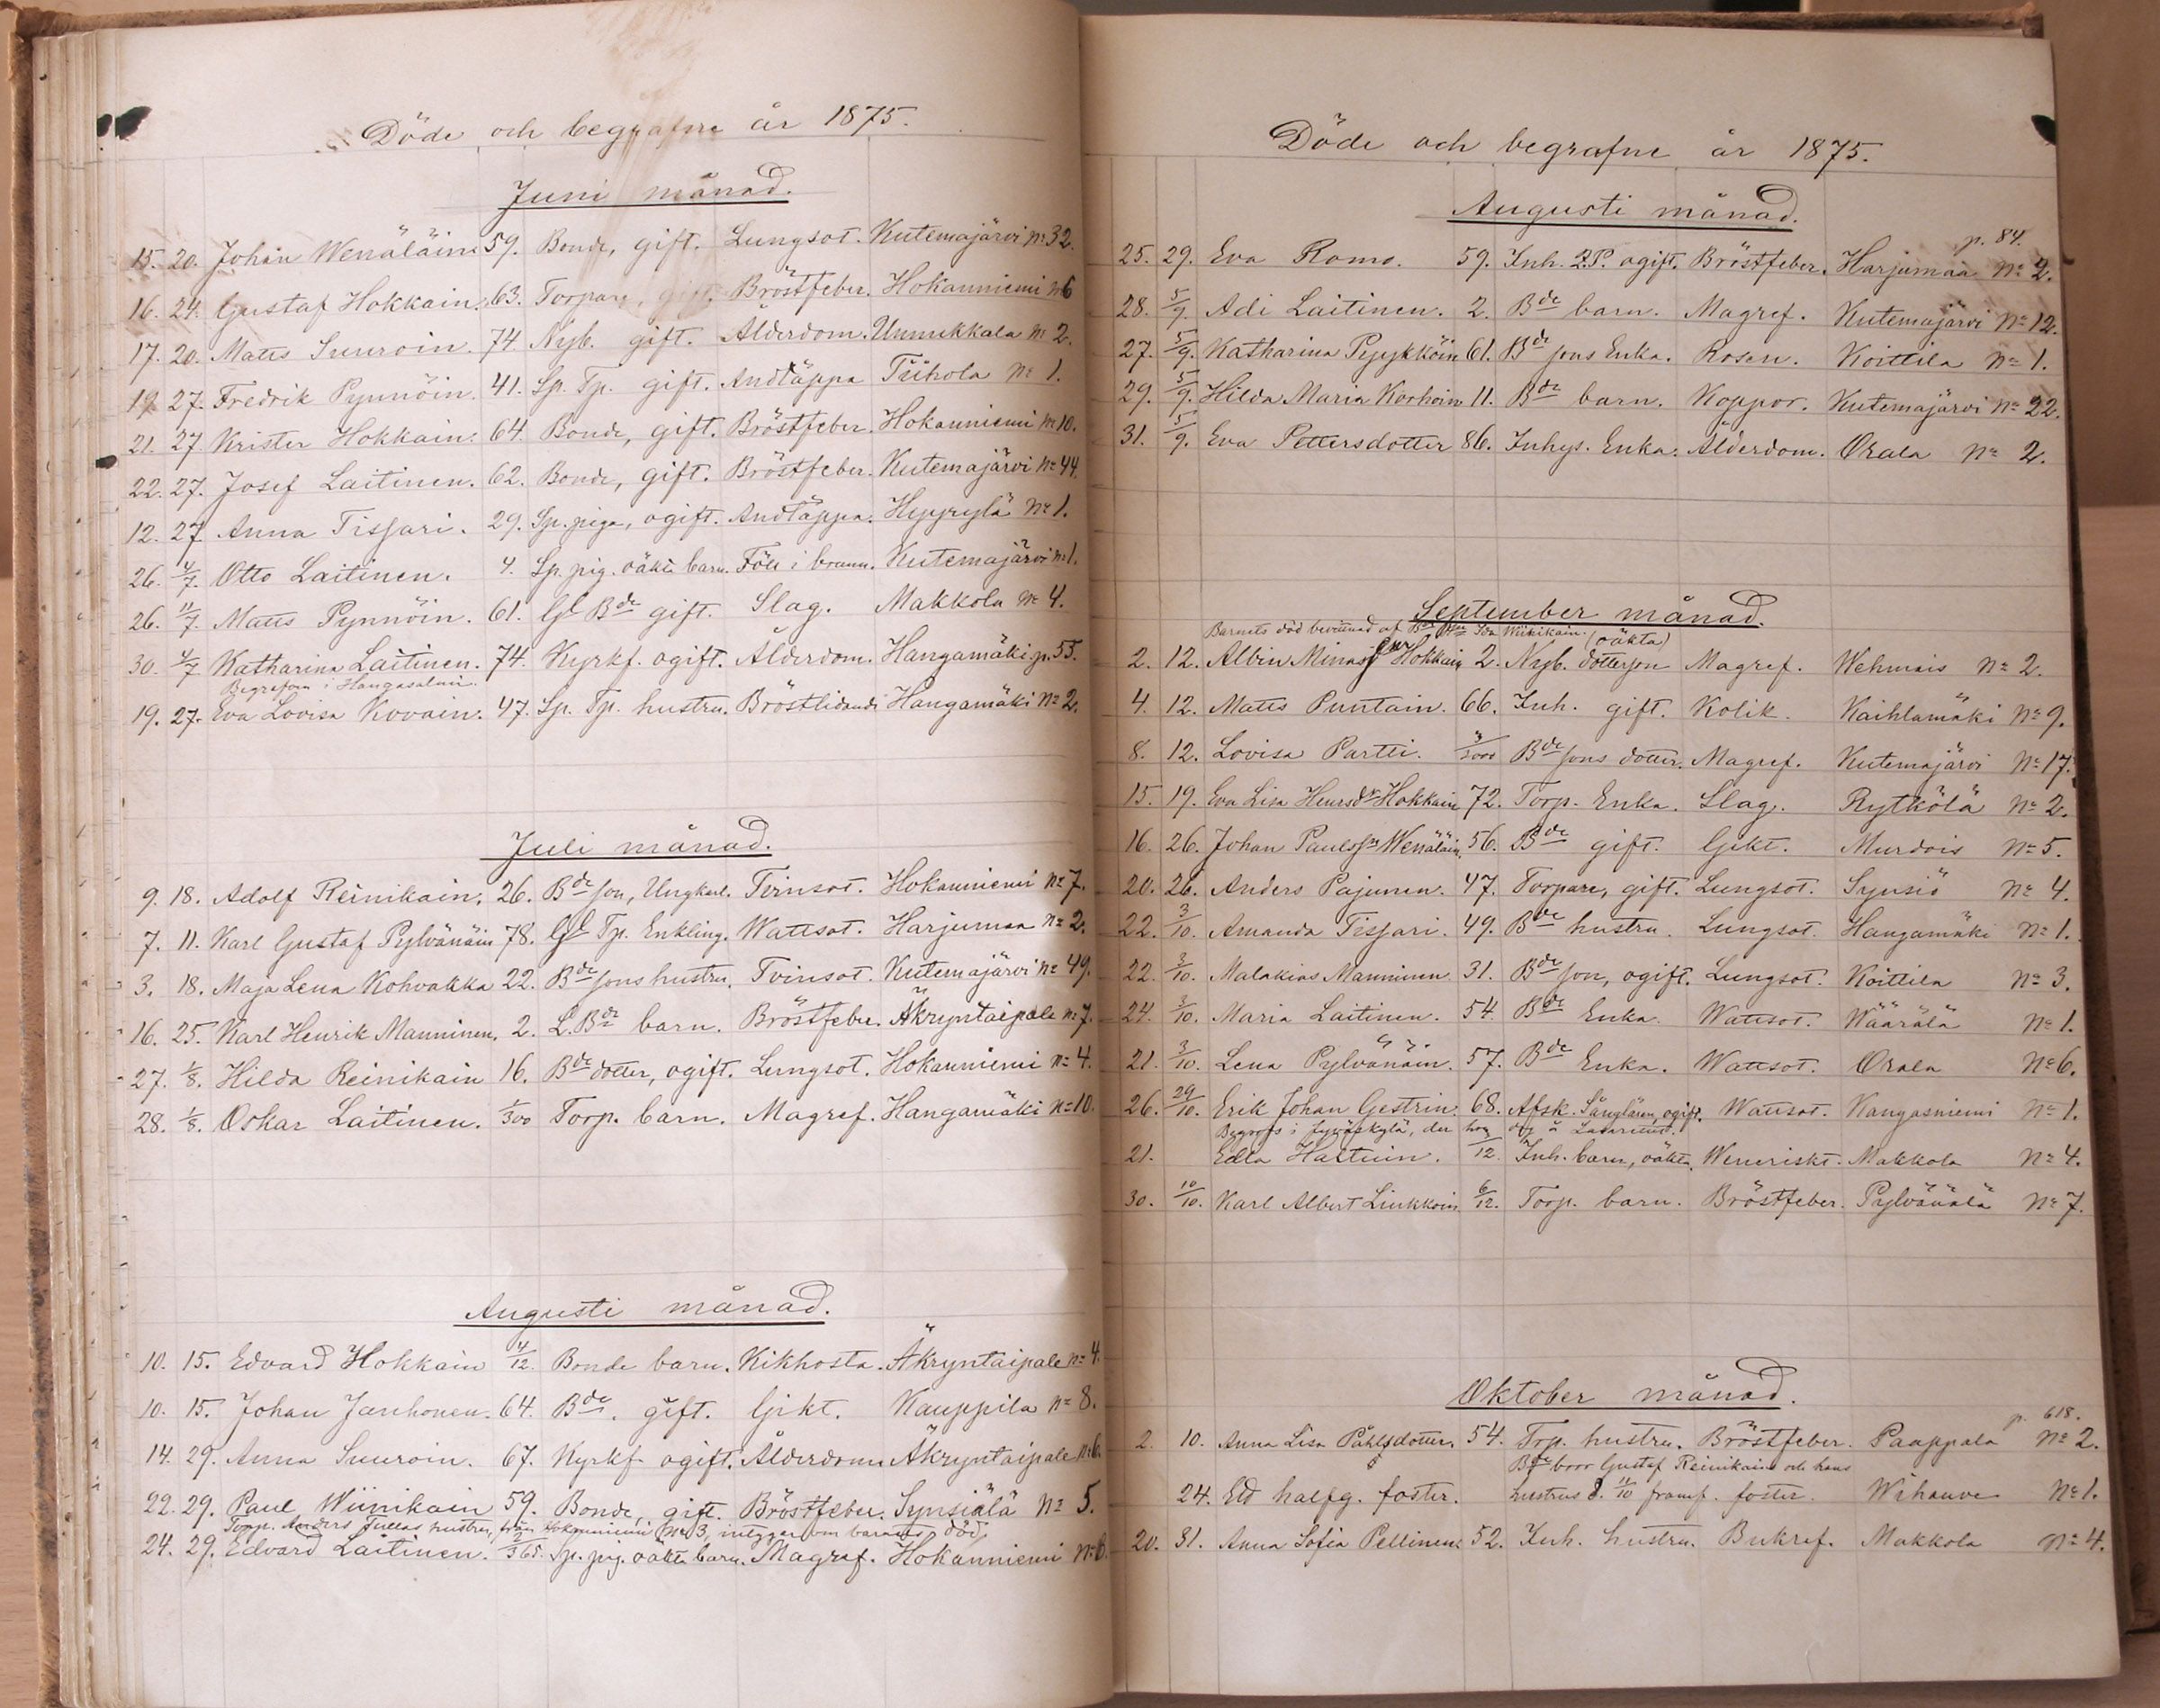 Döde och begrafne år 1875.
Juni månad.
15. 20. Johan Wenäläin 59. Bonde, gift. Lungsot. Kutemajärvi No 32.
16. 24. Gustaf Hokkain. 63. Torpare, gift. Bröstfeber. Hokanniemi No 6
17. 20. Matts Suuroin. 74. Nyb. gift. Ålderdom. Unnukkala No 2.
19. 27. Fredrik Pynnöin. 41. Sp. Tp. gift. Andtäppa Tiihola No 1.
21. 27. Krister Hokkain. 64. Bonde, gift. Bröstfeber. Hokanniemi No 10.
22. 27. Josef Laitinen. 62. Bonde, gift. Bröstfeber. Kutemajärvi No 44.
12. 27. Anna Tissari. 29. Sp. piga, ogift. Andtäppa. Hypyrylä No 1.
26. 4/7. Otto Laitinen. 4. Sp. pig. oäkta barn. Föll i brunn. Kutemajärvi No 1.
26. 11/7. Matts Pynnöin. 61. Gl Bde gift. Slag. Makkola No 4.
30. 4/7 Katharina Laitinen. 74. Kyrkf. ogift. Ålderdom. Hangamäki p. 55.
Begrafven i Hangasalmi.
19. 27. Eva Lovisa Kovain. 47. Sp. Tp. hustru. Bröstlidande Hangamäki No 2.
Juli månad.
9. 18. Adolf Reinikain. 26. Bde son, Ungkarl. Tvinsot. Hokanniemi No 7.
7. 11. Karl Gustaf Pylvänäin 78. Gl Tp. Enkling. Wattsot. Harjumaa No 2.
3. 18. Maja Lena Kohvakka 22. Bde sons hustru. Tvinsot. Kutemajärvi No 49.
16. 25. Karl Henrik Manninen. 2. L. Bde barn. Bröstfeber. Äkryntaipale No 7.
27. 1/8. Hilda Reinikain 16. Bde dotter, ogift. Lungsot. Hokanniemi No 4.
28. 1/8. Oskar Laitinen. 1/300 Torp. barn. Magref. Hangamäki No 10.
Augusti månad.
10. 15. Edvard Hokkain 4/12. Bonde barn. Kikhosta. Äkryntaipale No 4.
10. 15. Johan Janhonen. 64. Bde. gift. Gikt. Kauppila No 8.
14. 29. Anna Suuroin. 67. Kyrkf. ogift. Ålderdom. Äkryntaipale No 6.
22. 29. Paul Wiinikain 59. Bonde, gift. Bröstfeber. Synsiälä No 5.
Torp. Anders Tullas hustru, från Hokanniemi No 3, intygger om barnets död.
24. 29. Edvard Laitinen. 2/365. Sp. pig. oäkta barn. Magref. Hokanniemi No 6.
Döde och begrafne år 1875.
Augusti månad.
p. 84.
25. 29. Eva Romo. 59. Inh. ogift. Bröstfeber. Harjumaa No 2.
28. 5/9. Adi Laitinen. 2. Bde barn. Magref. Kutemajärvi No 12.
27. 5/9. Katharina Pyykköin 61. Bde sons Enka. Rosen. Koittila No 1.
29. 5/9. Hilda Maria Korhoin 11. Bde barn. Koppor. Kutemajärvi No 22.
31. 5/9. Eva Pettersdotter 86. Inhys. Enka. Ålderdom. Orala No 2.
September månad.
Barnets död bevittnad af Bde Ida Wiinikain. (oäkta)
2. 12. Albin Minas Hokkain 2. Nyb. dotterson Magref. Wehmais No 2.
4. 12. Matts Puntain. 66. Inh. gift. Kolik. Kaihlamäki No 9.
8. 12. Lovisa Partti. Bde sons dotter. Magref. Kutemajärvi No 17.
15. 19. Eva Lisa Henrsdr Hokkain 72. Torp. Enka. Slag. Rytkölä No 2.
16. 26. Johan Paulssn Wenäläin. 56. Bde gift. Gikt. Murdois No 5.
20. 26. Anders Pajunen. 47. Torpare, gift. Lungsot. Synsiö No 4.
22. 3/10. Amanda Tissari. 49. Bde hustru. Lungsot. Hangamäki No 1.
22. 3/10. Malakias Manninen 31. Bde son, ogift. Lungsot. Koittila No 3.
24. 3/10. Maria Laitinen. 54. Bde Enka. Wattsot. Wäärälä No 1.
21. 3/10. Lena Pylvänäin. 57. Bde Enka. Wattsot. Orala No 6.
26. 29/10. Erik Johan Gestrin. 68. Afsk. ogift. Wattsot. Kangasniemi No 1.
Begrofs i Jyväskylä, der han dog å Lasarettet.
21. Edla Hartuin. /12. Inh. barn, oäkta. Weneriskt. Makkola No 4.
30. 10/10. Karl Albert Linkkoin 6/12. Torp. barn. Bröstfeber. Pylvänälä No 7.
Oktober månad.
p. 618.
2. 10. Anna Lisa Påhlsdotter. 54. Trp. hustru. Bröstfeber. Paappala No 2.
Bde bror Gustaf Reinikains och hans
24. Ett halfg. foster. hustrus d. 11/10 framf. foster. Wihanve No 1.
20. 31. Anna Sofia Pellinen 52. Inh. hustru. Bukref. Makkola No 4.